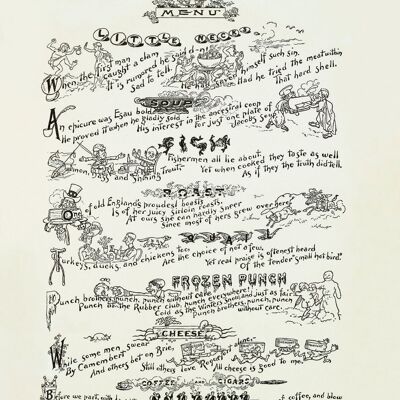 MENU
LITTLE NECKS
When the first man
caught a clam
It is rumored he said d-n!
Sad to tell.
He had saved himself such sin,
Had he tried the meat within
That hard shell.
SOUP
An epicure was Esau bold,
He proved it when he gladly sold
His interest in the ancestral coop
For just one plate of
Jacob's soup.
FISH
Fishermen all lie about,
and Shining Trout,
Yet when cooked they taste as well
As if they the truth did tell.
ROAST
of old England's proudest boasts
Is of her juicy sirloin roasts.
At ours she can hardly sneer
Since most of hers grew over here.
Turkeys, ducks, and chickens too,
Are the choice of not a few,
Yet real praise is oftenest heard
Of the tender "small hot bird."
FROZEN PUNCH
Punch brothers, punch, punch without care,
Punch at the Rubber club, punch everywhere!
Cold as the winter's snow, and just as fair
Punch brothers, punch, punch
without care.
CHEESE
While some men, swear
By Camembert
And others bet on Brie,
Still others love Roquefort alone,
All cheese is good to me.
COFFEE AND CIGARS
Before we part, with
of coffee, and blow